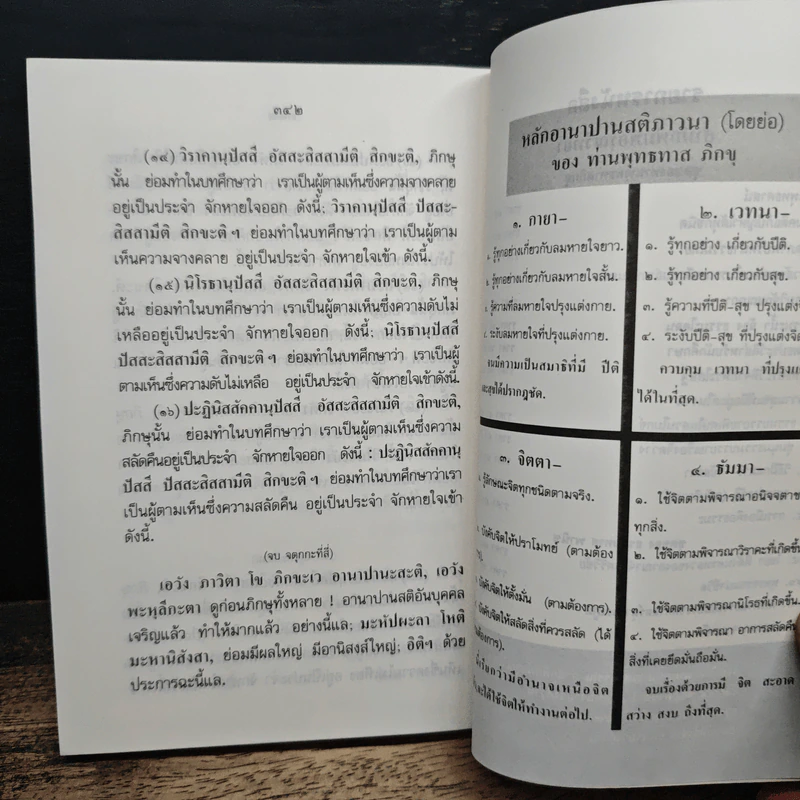 ๓๔๒
(๑๔) วิราคานุปัสสี อัสสะสิสสามีติ สิกขะติ, ภิกษุ
นั้น ย่อมทำในบทศึกษาว่า เราเป็นผู้ตามเห็นซึ่งความจางคลาย
อยู่เป็นประจำ จักหายใจออก ดังนี้; วิราคานุปัสสี ปัสสะ-
สิสสามีติ สิกขะติ ฯ ย่อมทำในบทศึกษาว่า เราเป็นผู้ตาม
เห็นความจางคลาย อยู่เป็นประจำ จักหายใจเข้า ดังนี้.
(๑๕) นิโรธานุปัสสี อัสสะสิสสามีติ สิกขะติ, ภิกษุ
นั้น ย่อมทำในบทศึกษาว่า เราเป็นผู้ตามเห็นซึ่งความดับไม่
เหลืออยู่เป็นประจำ จักหายใจออก ดังนี้; นิโรธานุปัสสี
ปัสสะสิสสามีติ สิกขะติ ฯ ย่อมทำในบทศึกษาว่า เราเป็นผู้
ตามเห็นซึ่งความดับไม่เหลือ อยู่เป็นประจำ จักหายใจเข้าดังนี้.
(๑๖) ปะฏินิสสัคคานุปัสสี อัสสะสิสสามีติ สิกขะติ,
ภิกษุนั้น ย่อมทำในบทศึกษาว่า เราเป็นผู้ตามเห็นซึ่งความ
สลัดคืนอยู่เป็นประจำ จักหายใจออก ดังนี้ : ปะฏินิสสัคคานุ
ปัสสี ปัสสะสิสสามีติ สิกขะติ ฯ ย่อมทำในบทศึกษาว่าเรา
เป็นผู้ตามเห็นซึ่งความสลัดคืน อยู่เป็นประจำ จักหายใจเข้า
ดังนี้.
(จบ จตุกกะที่สี่)
เอวัง ภาวิตา โข ภิกขะเว อานาปานะสะติ, เอวัง
พะหุลีกะตา ดูก่อนภิกษุทั้งหลาย ! อานาปานสติอันบุคคล
เจริญแล้ว ทำให้มากแล้ว อย่างนี้แล; มะหัปผะลา โหติ
มะหานิสังสา, ย่อมมีผลใหญ่ มีอานิสงส์ใหญ่; อิติฯ ด้วย
ประการฉะนี้แล.
หลักอานาปานสติภาวนา (โดยย่อ)
ของ ท่านพุทธทาส ภิกขุ
๑. กายา-
รู้ทุกอย่างเกี่ยวกับลมหายใจยาว.
รู้ทุกอย่างเกี่ยวกับลมหายใจสั้น.
รู้ความที่ลมหายใจปรุงแต่งกาย.
ระงับลมหายใจที่ปรุงแต่งกาย.
มีความเป็นสมาธิที่มี ปีติ
และสุขได้ปรากฏชัด.
๒. เวทนา-
๑. รู้ทุกอย่าง เกี่ยวกับปีติ.
๒. รู้ทุกอย่าง เกี่ยวกับสุข.
๓. รู้ความที่ปีติ-สุข ปรุงแต่ง
๔. ระงับปีติ-สุข ที่ปรุงแต่ง
ควบคุม เวทนา ที่
ได้ในที่สุด.
๓. จิตตา-
รู้ลักษณะจิตทุกชนิดตามจริง.
บังคับจิตให้ปราโมทย์ (ตามต้อง
บังคับจิตให้ตั้งมั่น (ตามต้องการ).
บังคับจิตให้สลัดสิ่งที่ควรสลัด (ได้
ต้องการ).
เรียกว่ามีอำนาจเหนือจิต
และได้ใช้จิตให้ทำงานต่อไป.
๔. ธัมมา-
๑. ใช้จิตตามพิจารณาอนิจจตา
ทุกสิ่ง.
๒. ใช้จิตตามพิจารณาวิราคะที่เกิดขึ้น.
๓. ใช้จิตตามพิจารณานิโรธที่เกิดขึ้น.
๔. ใช้จิตตามพิจารณา อาการสลัดคืน
สิ่งที่เคยยึดมั่นถือมั่น.
จบเรื่องด้วยการมี จิต สะอาด
สว่าง สงบ ถึงที่สุด.